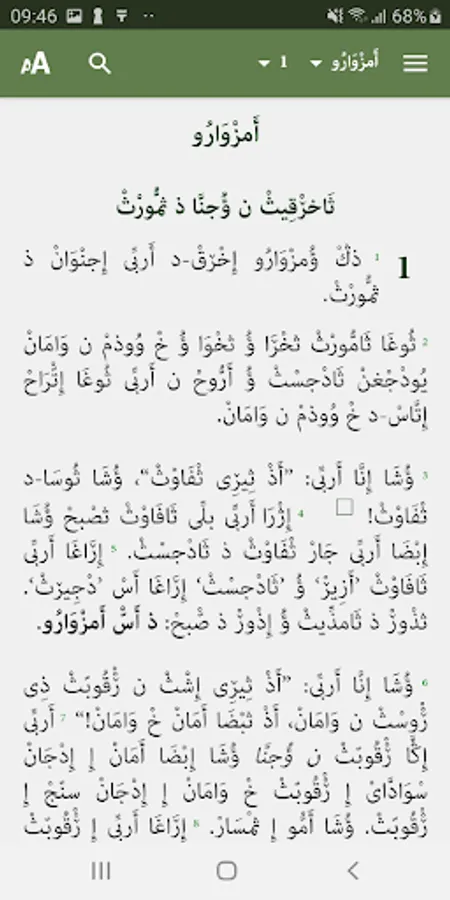 09:46 68%
أَمزْوَارُو 1
أَمزْوَارُو
ثَاخزْقِيثْ ن ؤُجنَّا ذ ثمُّورْثْ
1 1 ذڭْ ؤُمزْوَارُو إِخْرْقْ-د أَربِّى إِجنْوَانْ ذ
ثمُّورْثْ.
2 ثُوغَا ثَامُّورْثْ ثخْرَا ؤُ ثخْوَا ؤُ خْ وُوذمْ ن وَامَانْ
يُوذْجغنْ ثَادْجسْثْ ؤُ أَرُّوحْ ن أَربِّى ثُوغَا إِتّْرَاحْ
إِتَّاسْ-د خْ وُوذمْ ن وَامَانْ.
3 ؤُشَا إِنَّا أَربِّى: ”أَذْ ثِيرِى ثْفَاوْثْ“، ؤُشَا ثُوسَا-د
ثْفَاوْثْ! 4 إِژْرَا أَربِّى بلِّى ثَافَاوْثْ ثصْبحْ ؤُشَا
إِبْضَا أَربِّى جَارْ ثْفَاوْثْ ذ ثَادْجسْثْ. 5 إِرَاغَا أَربِّى
ثَافَاوْثْ ’أَزِيرْ‘ ؤُ ’ثَادْجسْثْ‘ إِرَاغَا أَسْ ’دْجِيرْثْ‘.
ثذْوڒْ ذ ثَامذِّيثْ ؤُ إِذْوڒْ ذ صّْبحْ: ذ أَسّْ أَمزْوَارُو.
6 ؤُشَا إِنَّا أَربِّى: ”أَذْ ثِيرِى إِشْثْ ن زّْقُوبّثْ ذِى
ڒْوُسْثْ ن وَامَانْ، أَذْ ثبْضَا أَمَانْ خْ وَامَانْ!“ 7 أَربِّى
إِڭَّا زّْقُوبّثْ ن ؤُجنَّا ؤُشَا إِبْضَا أَمَانْ إِ إِدْجَانْ
سْوَادَّاىْ إِ زّْقُوبّثْ خْ وَامَانْ إِ إِدْجَانْ سنّجْ إِ
زّْقُوبّثْ. ؤُشَا أَمُّو إِ ثمْسَارْ. 8 إِرَاغَا أَربِّى إِ زّْقُوبّثْ